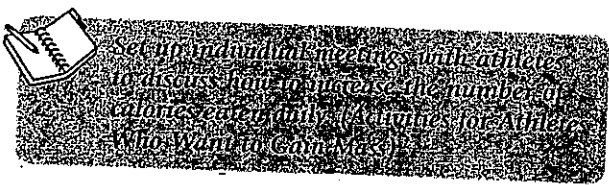 Set up individual meetings with athletes
to discuss how to increase the number of
calories eaten daily. (Activities for Athletes
Who Want to Gain Mass)